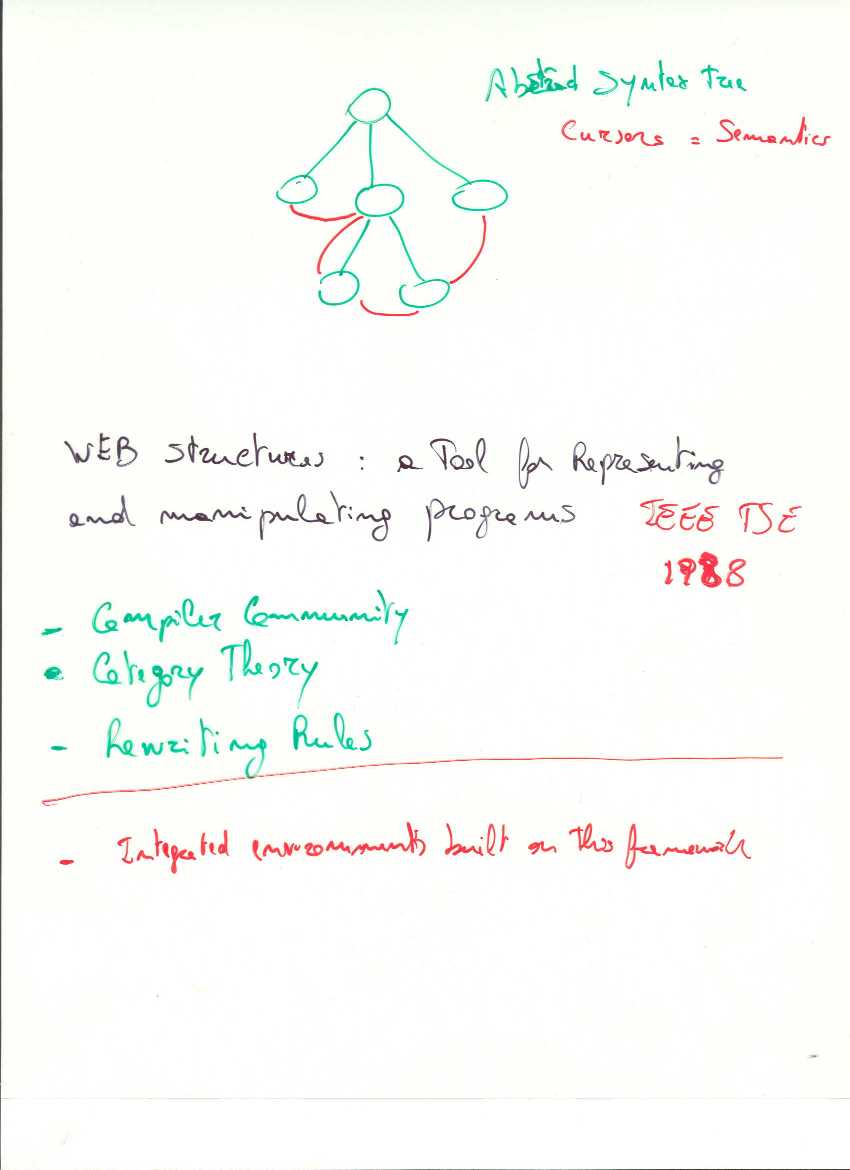 Abstract Syntax Tree
Cursors = Semantics
WEB structures : a Tool for Representing
and manipulating programs IEEE TSE
1988
- Compiler Community
- Category Theory
- Rewriting Rules
- Integrated environments built on this framework